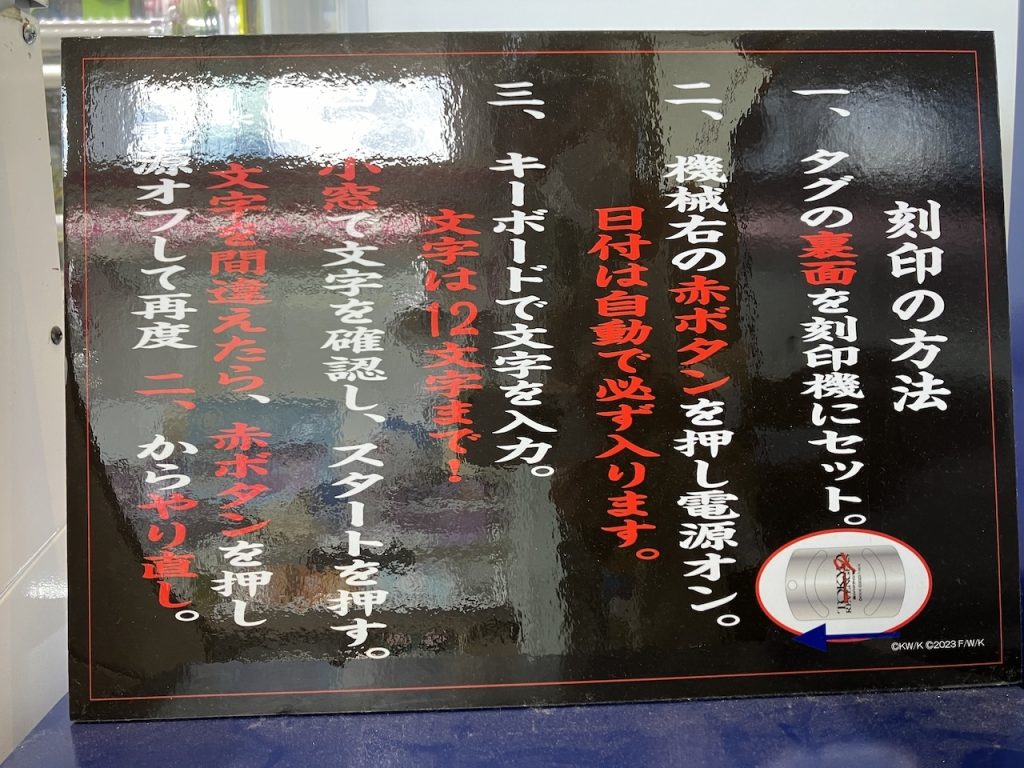 刻印の方法
一、 タグの裏面を刻印機にセット。
二、 機械右の赤ボタンを押し電源オン。
日付は自動で必ず入ります。
三、 キーボードで文字を入力。
文字は12文字まで!
小窓で文字を確認し、スタートを押す。
文字を間違えたら、赤ボタンを押し
源オフして再度 二、からやり直し。
©KW/K ©2023 F/W/K